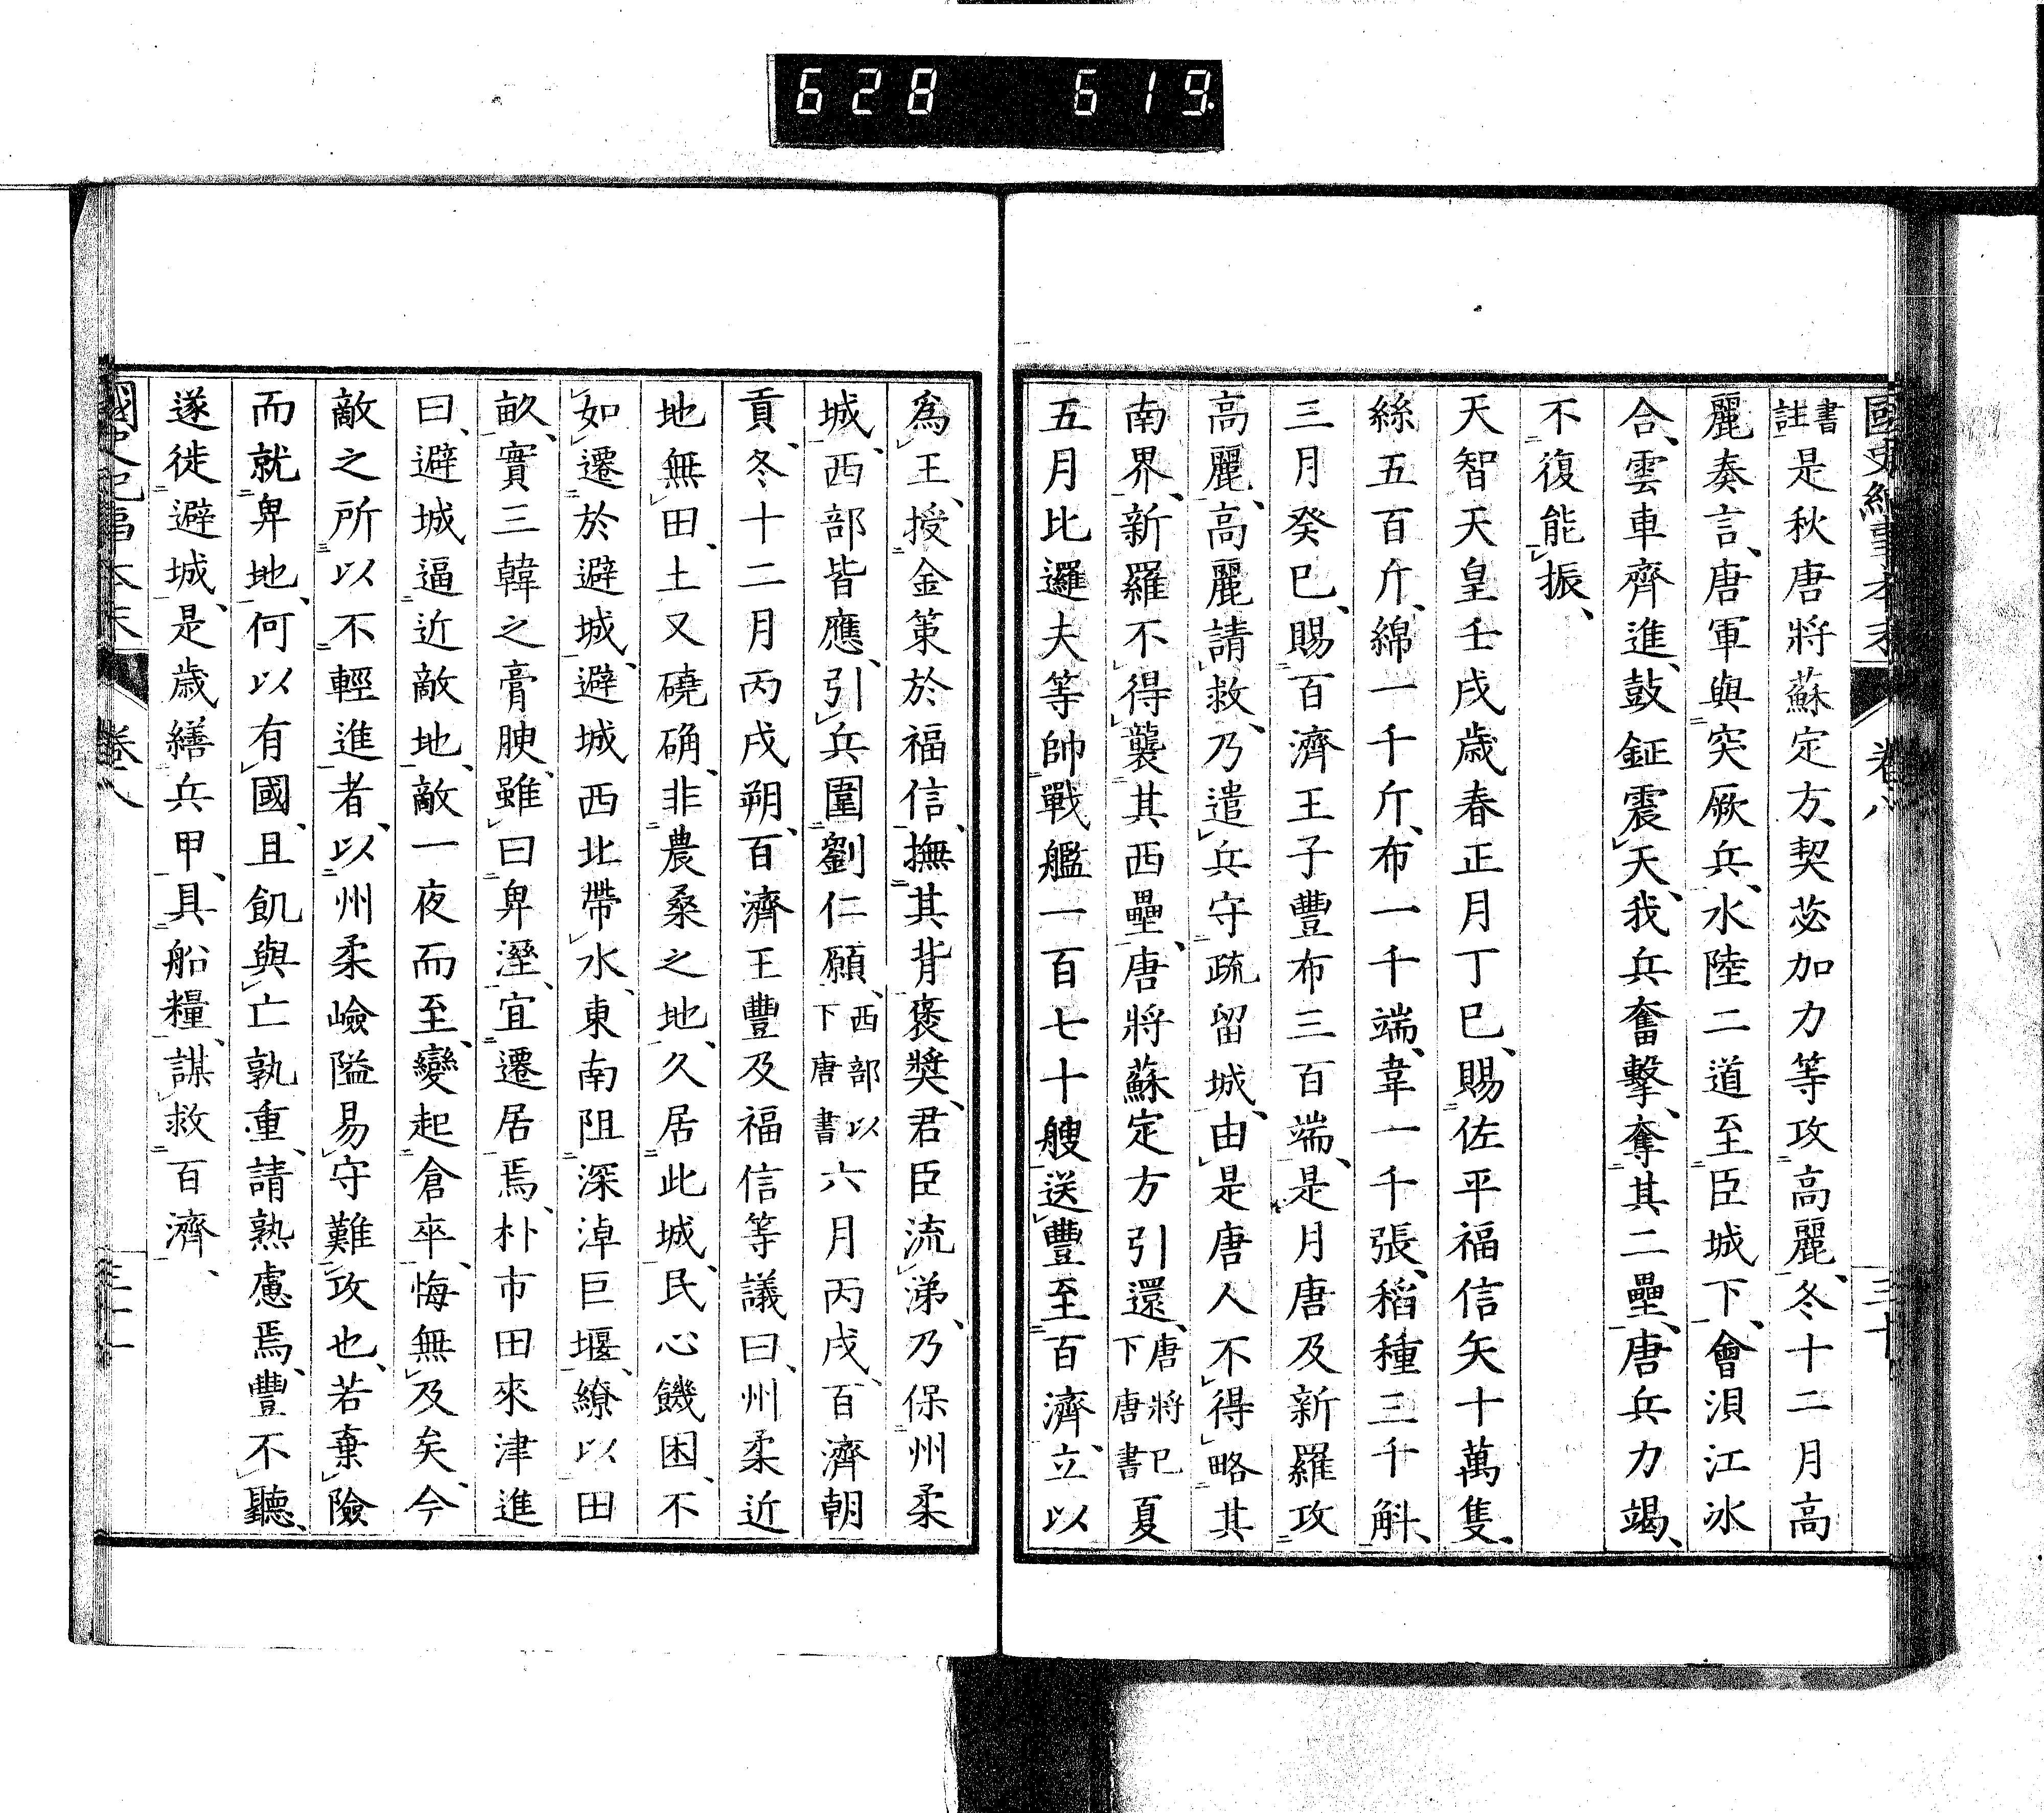 628 619
國史紀事本末 卷八 三十
書註是秋唐將蘇定方、契苾加力等攻高麗、冬十二月高
麗奏言、唐軍與突厥兵、水陸二道至臣城下、會浿江冰
合、雲車齊進、鼓鉦震天、我兵奮擊、奪其二壘、唐兵力竭、
不復能振、
天智天皇壬戌歲春正月丁巳、賜佐平福信矢十萬隻、
絲五百斤、綿一千斤、布一千端、韋一千張、稻種三千斛、
三月癸巳、賜百濟王子豐布三百端、是月唐及新羅攻
高麗、高麗請救、乃遣兵守疏留城、由是唐人不得略其
南界、新羅不得襲其西壘、唐將蘇定方引還、唐將已下唐書夏
五月比邏夫等帥戰艦一百七十艘送豐至百濟、立以
爲王、授金策於福信、撫其背褒奬、君臣流涕、乃保州柔
城、西部皆應、引兵圍劉仁願、西部以下唐書六月丙戌、百濟朝
貢、冬十二月丙戌朔、百濟王豐及福信等議曰、州柔近
地無田、土又磽确、非農桑之地、久居此城、民心饑困、不
如遷於避城、避城西北帶水、東南阻深淖巨堰、繚以田
畝、實三韓之膏腴、雖曰卑溼、宜遷居焉、朴市田來津進
曰、避城逼近敵地、敵一夜而至、變起倉卒、悔無及矣、今
敵之所以不輕進者、以州柔嶮隘易守難攻也、若棄險
而就卑地、何以有國、且飢與亡孰重、請熟慮焉、豐不聽、
遂徙避城、是歲繕兵甲、具船糧、謀救百濟、
國史紀事本末 卷八 三十一